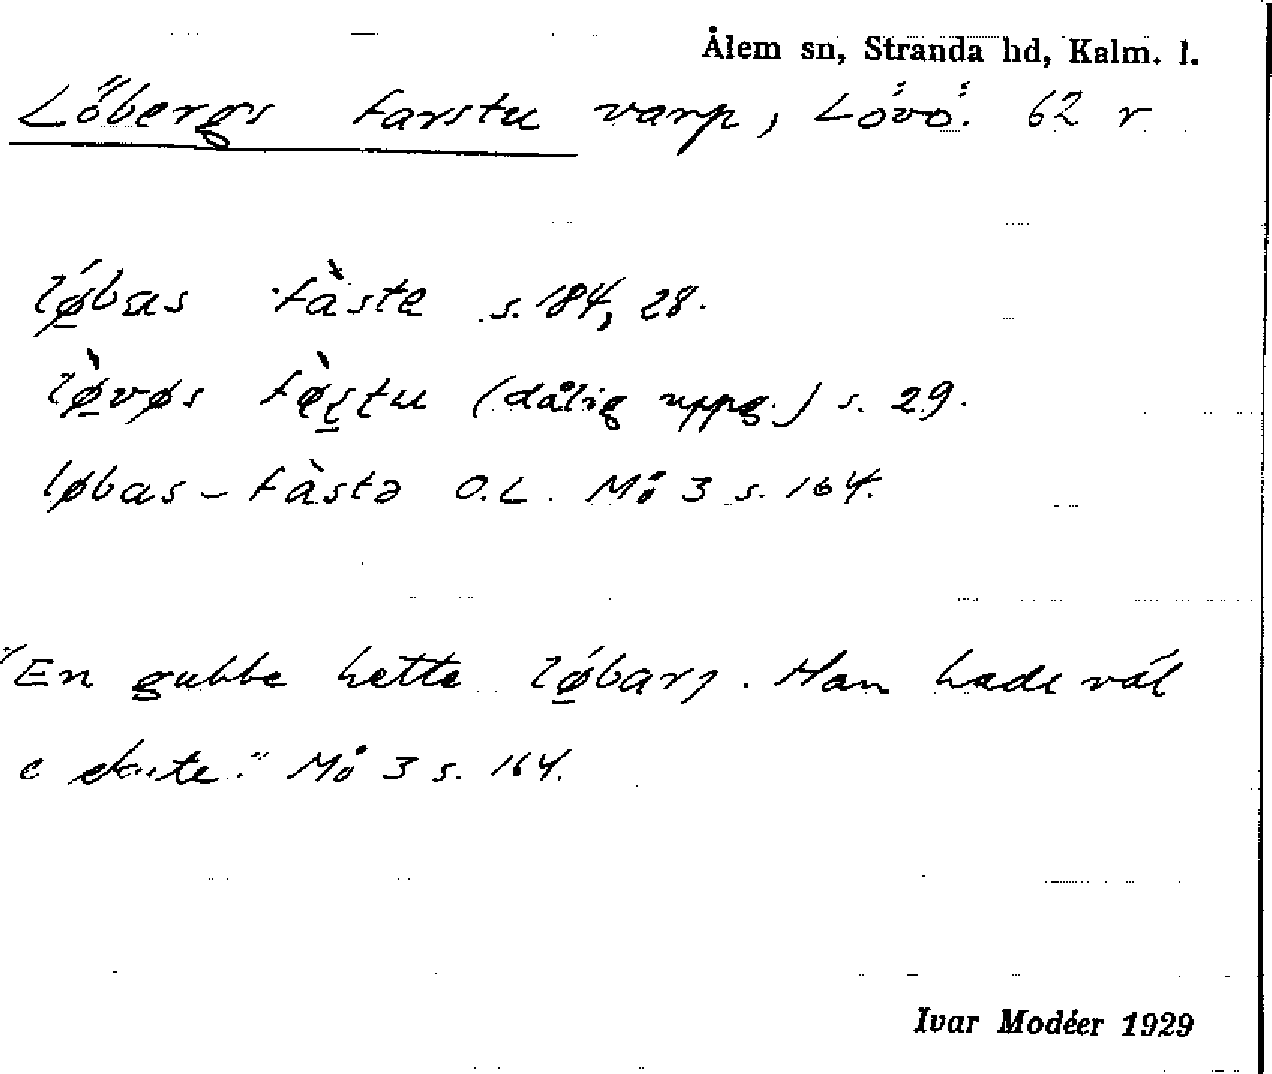 Ålem sn, Stranda hd, Kalm. l.
Löbergs farstu varp, Lövö. 62 r
lǿbas fàsta s. 184, 28.
lø̀vøs fæ̀stu (dålig uppg.) s. 29.
løbas-fàstə O.L. Mö 3 s. 164.
"En gubbe hette lǿbarj. Han hade väl
e " Mö 3 s. 164.
Ivar Modéer 1929